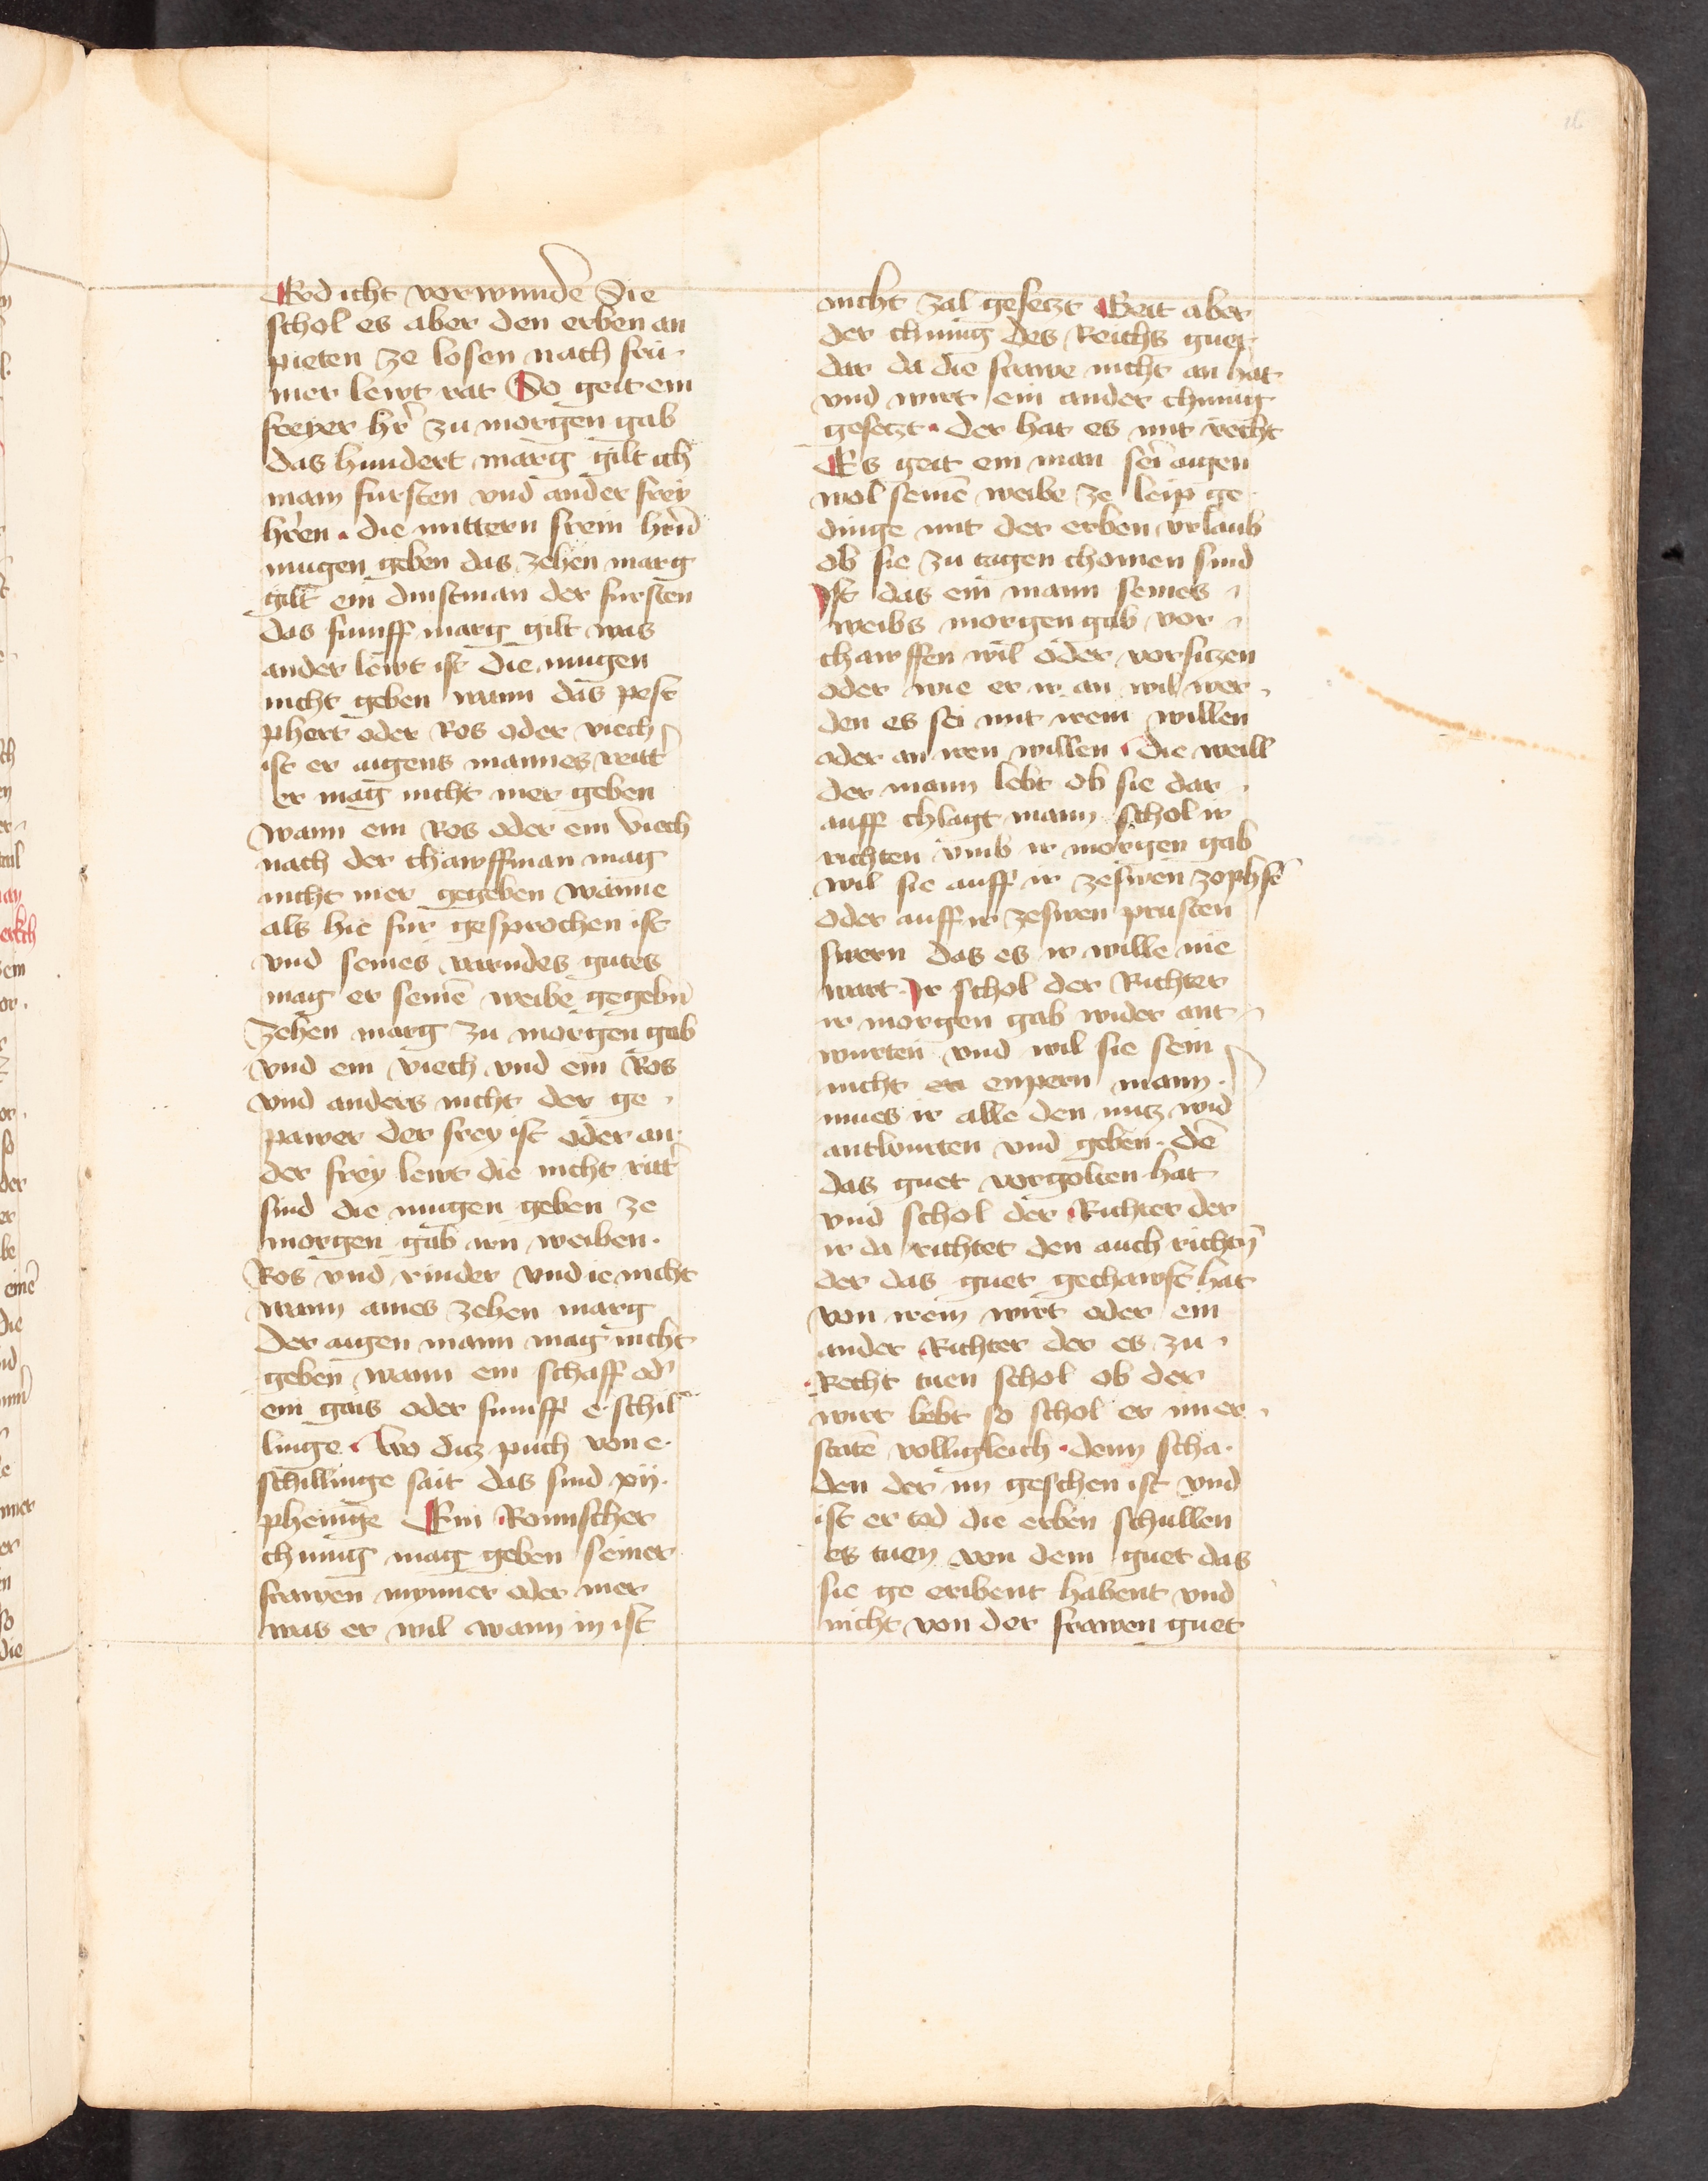 Erd icht vorwunde Die
schol es aber den erben an
pieten ze losen nach fru
mer lewt rat So geit ein
freyer hr̄ zu morgen gab
das hundert marg gilt ich
main fursten vnd ander frey
hr̄en . die mittern frein hr̄n
mugen geben das zehen marg
gilt ein dinstman der fursten
das fumff marg gilt was
ander lewt ist die mugen
nicht geben wann das pest
phert oder Ros oder viech
ist er aigens mannes ritt̄
er mag nicht mer geben
wann ein Ros oder ein viech
nach der chawffman mag
nicht mer gegeben wanne
als hie fur gesprochen ist
vnd seines varndes gutes
mag er seinē weibe gegebn̄
zehen marg zu morgen gab
vnd ein viech vnd ein Ros
vnd anders nicht der ge
pawer der frey ist oder an
der frey lewt die nicht ritt̄
sind die mugen geben ze
morgen gab irn weiben .
Ros vnd rinder vnd ie nicht
wann aines zehen marg
Der aigen mann mag nicht
geben wann ein schaff od̄
ein gais oder fumff e schil
linge . Wo ditz puch von e .
schillinge sait das sind xij .
phenige Ein Romischer
chunig mag geben seiner
frawen mynner oder mer
was er wil wann in ist
nicht zal gesetzt Geit aber
der chunig des Reichs guet
dar da die frawe nicht an hat
vnd wirt ein ander chunig
gesetzt . der hat es mit recht
Es geit ein man sei aigen
wol seinē weibe ze leip ge
dinge mit der erben vrlaub
ob sie zu tagen chomen sind
Ist das ein mann seines
weibs morgen gab vor
chawffen wil oder vorsitzen
oder wie er ir an wil wer
den es sei mit irem willen
oder an iren willen . die weill
der mann lebt ob sie dar
auff chlagt mann schol ir
richten vmb ir morgen gab
wil sie auff ir zeswen zophfē
oder auff ir zeswen prusten
swern das es ir wille nie
wart . Ir schol der Richter
ir morgen gab wider ant
wurten vnd wil sie sein
nicht en empern mann .
mues ir alle den nutz wid̄
antwurten vnd geben . dē
das guet vorgolten hat
vnd schol der Richter der
ir da richtet den auch richtn̄
der das guet gechawft hat
von irem wirt oder ein
ander Richter der es zu
Recht tuen schol ob der
wirt lebt so schol er im er
statē volligleich . denn scha
den der im geschen ist vnd
ist er tod die erben schullen
es tuen von dem guet das
sie ge eribent habent vnd
nicht von der frawen guet